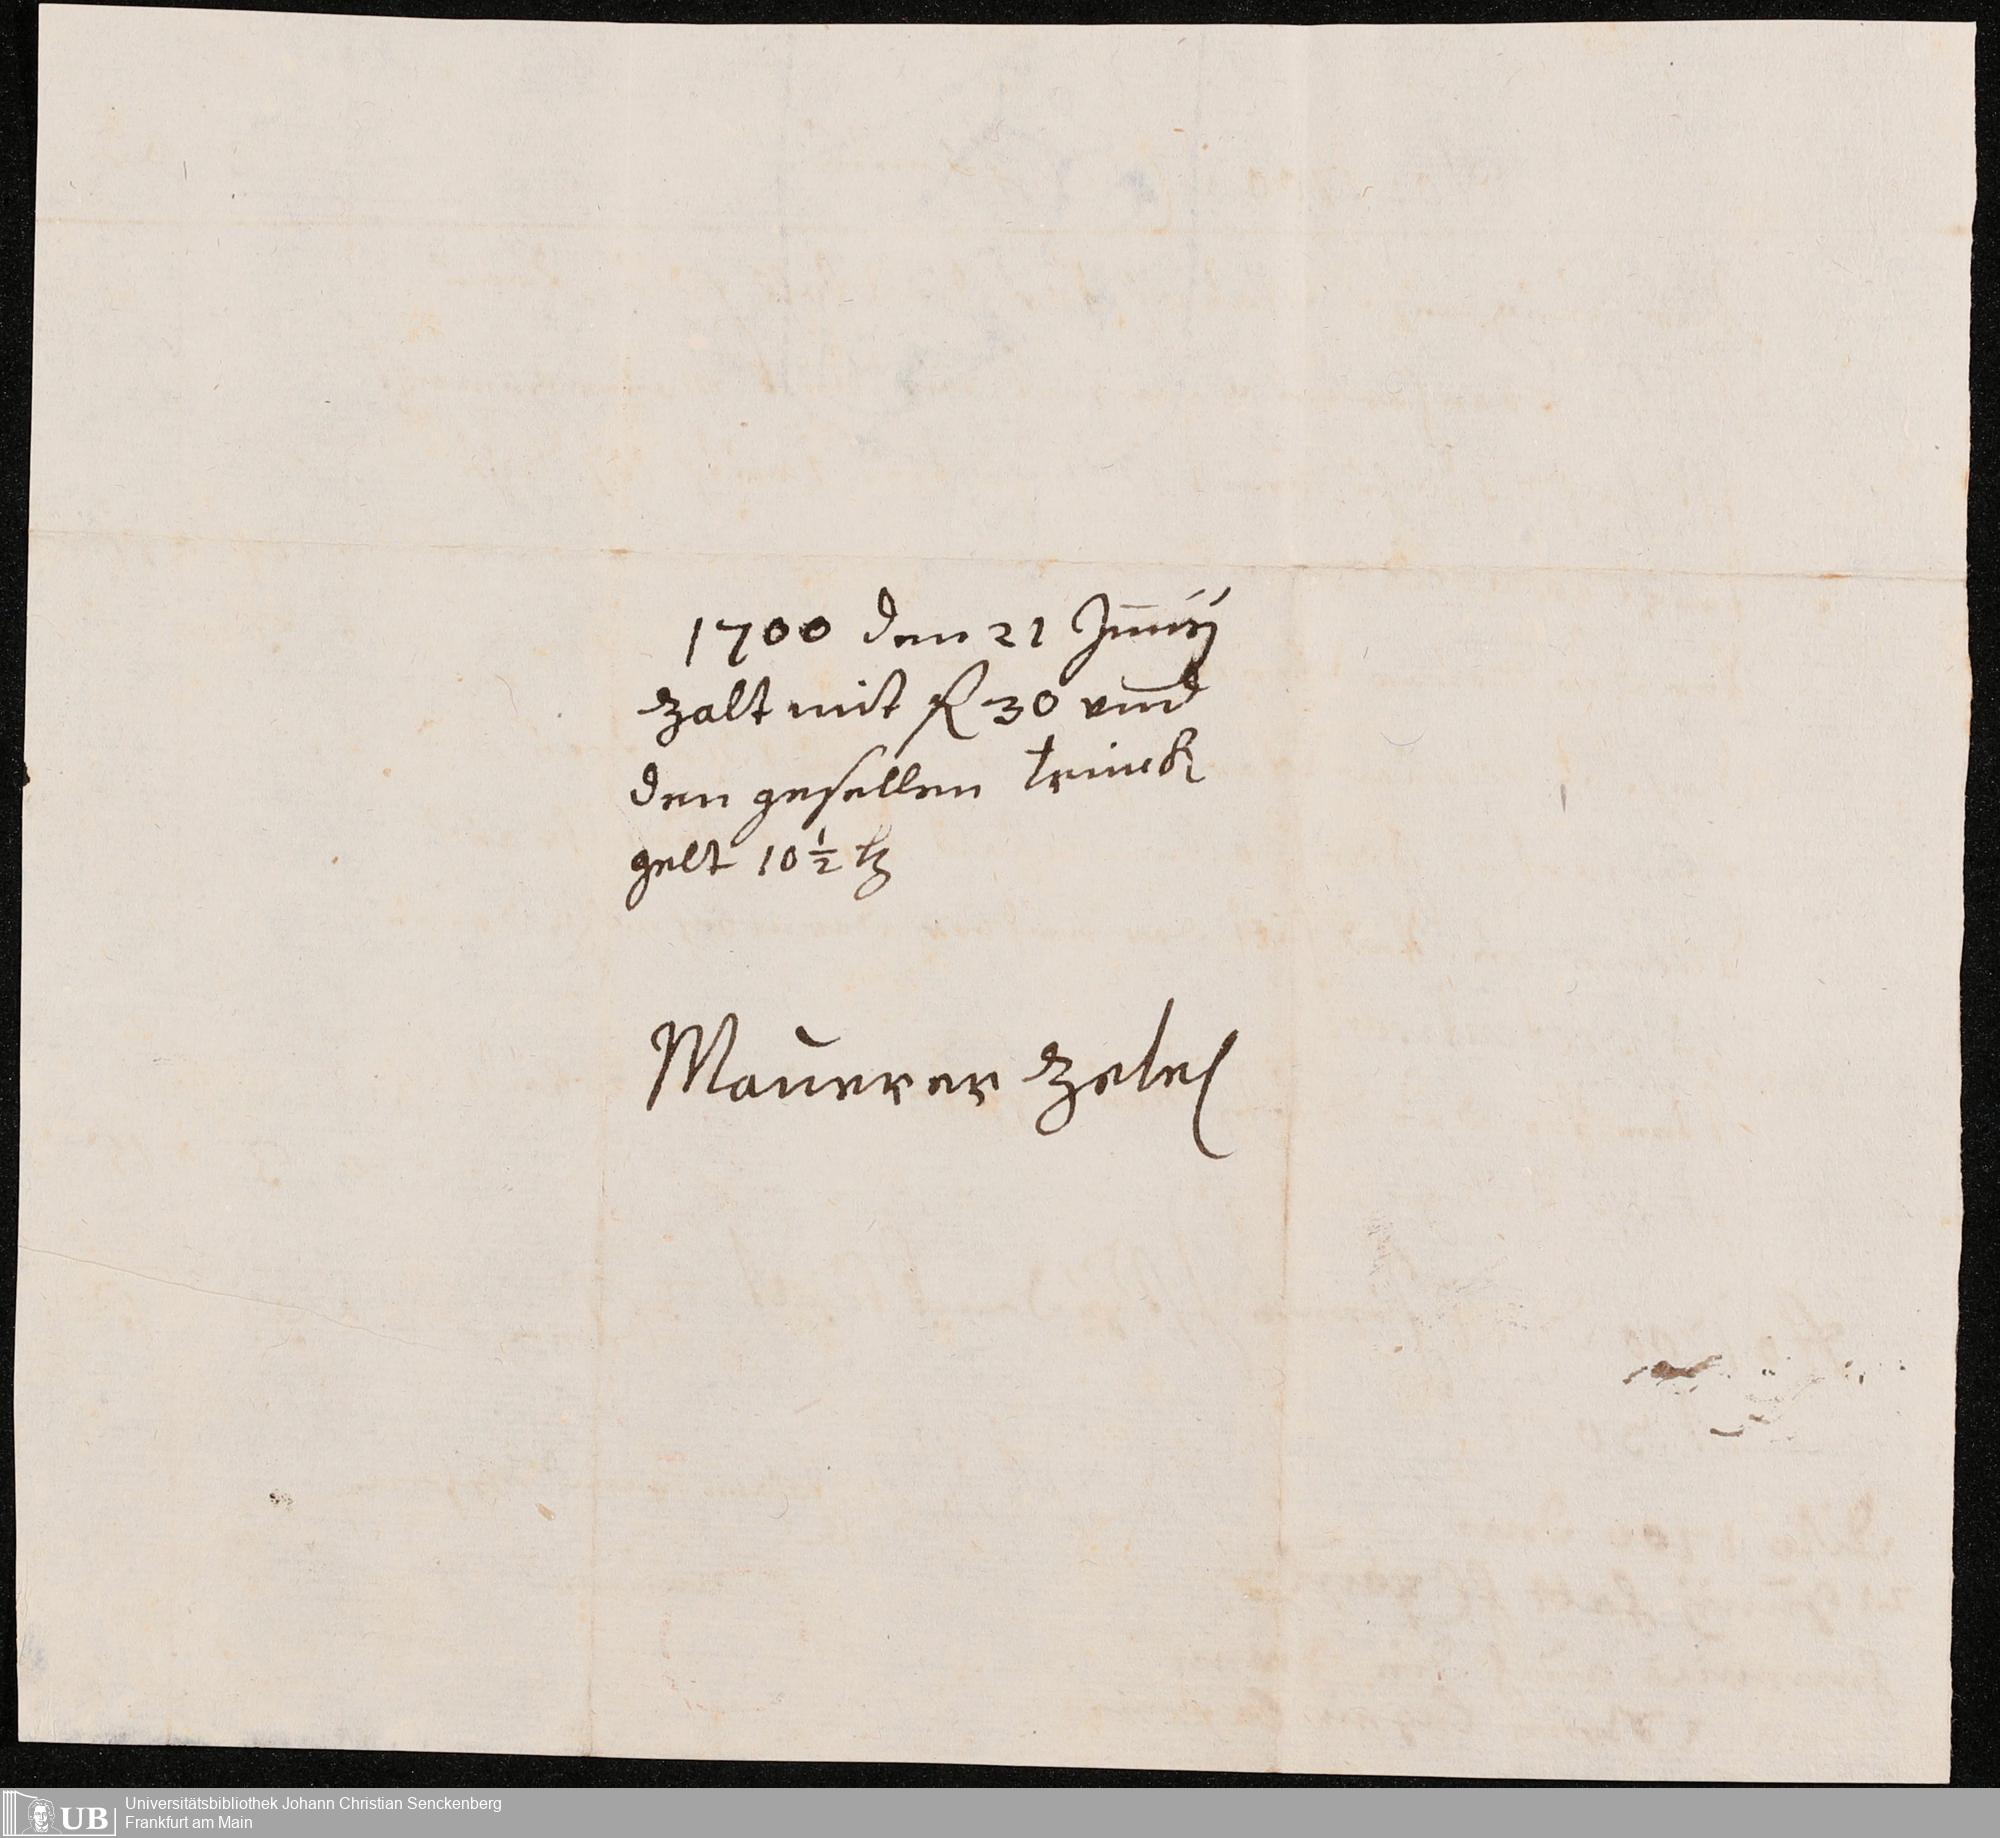 1700 den 21 Junÿ
zalt mit fl 30 vnd
den gesellen trinck
gelt 10 1/2 bz
Maurer zetel
UB
Universitätsbibliothek Johann Christian Senckenberg
Frankfurt am Main